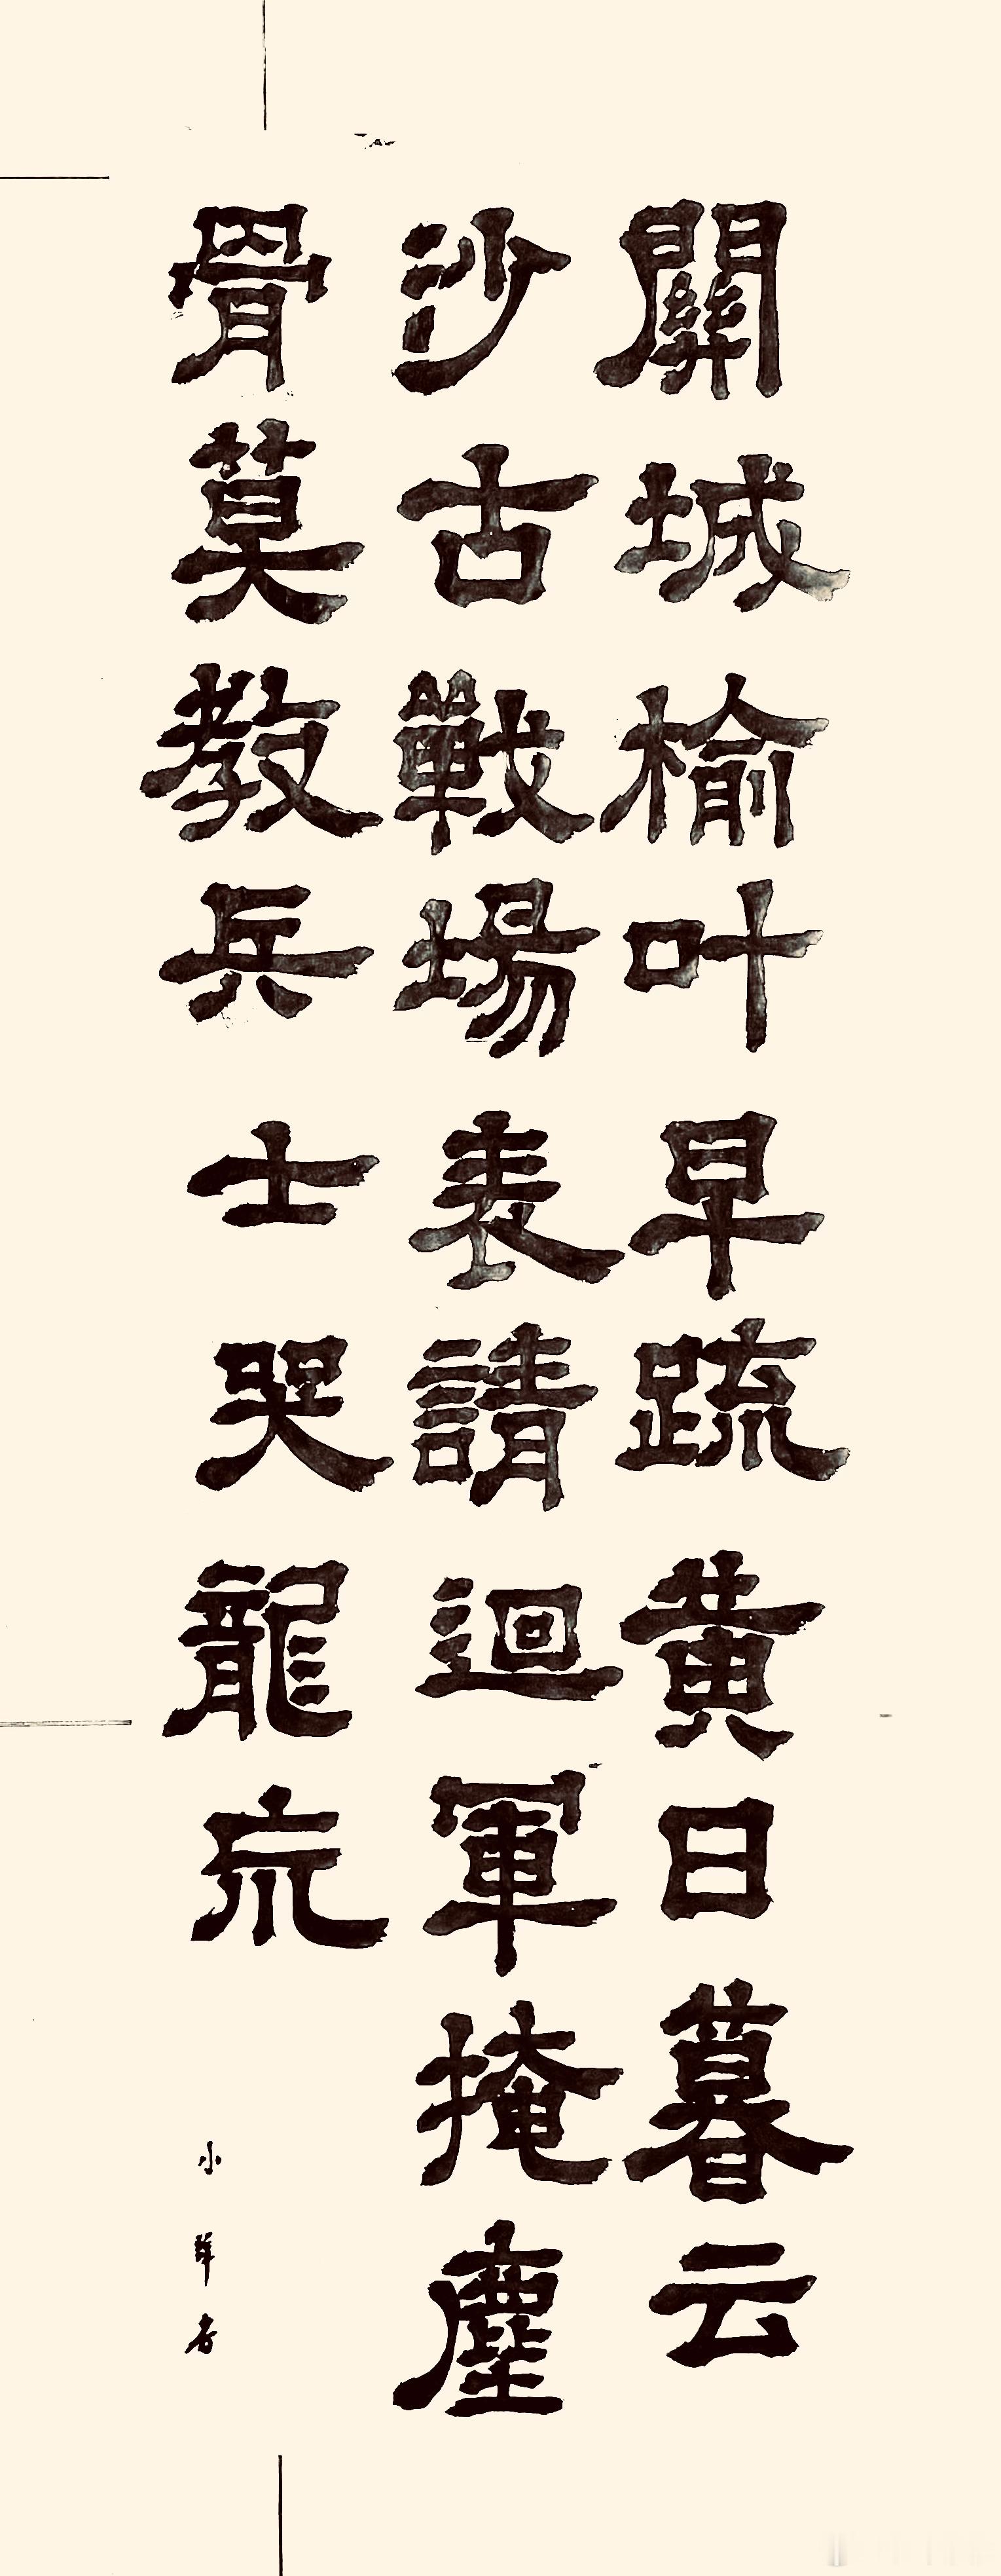 關城榆叶早疏黄日暮云
沙古戰場表請迴軍掩塵
骨莫教兵士哭龍巟
小